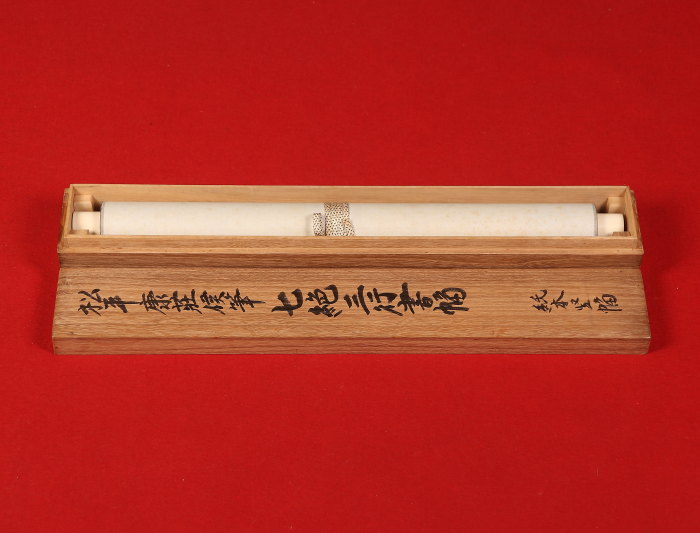 松平康荘侯筆 七絶三行書幅
紙本竪幅